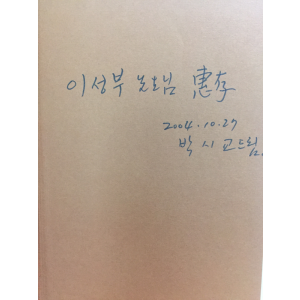 이성부 노형님 惠存
2004.10.27
박 시 교 드림.